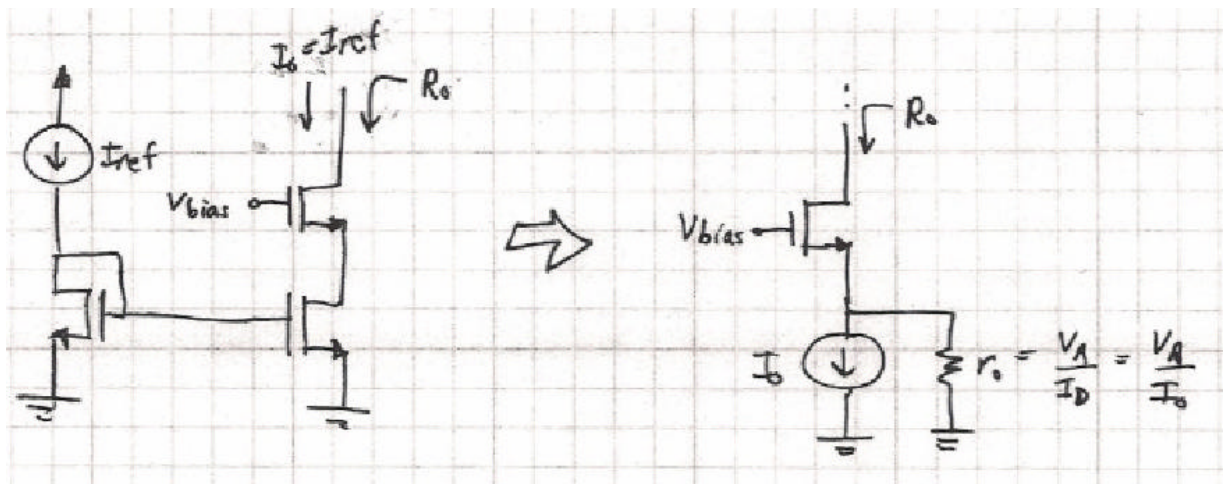 I₀ = Iref
R₀
Iref
Vbias
R₀
Vbias
I₀
r₀ = V_A/I_D = V_A/I₀